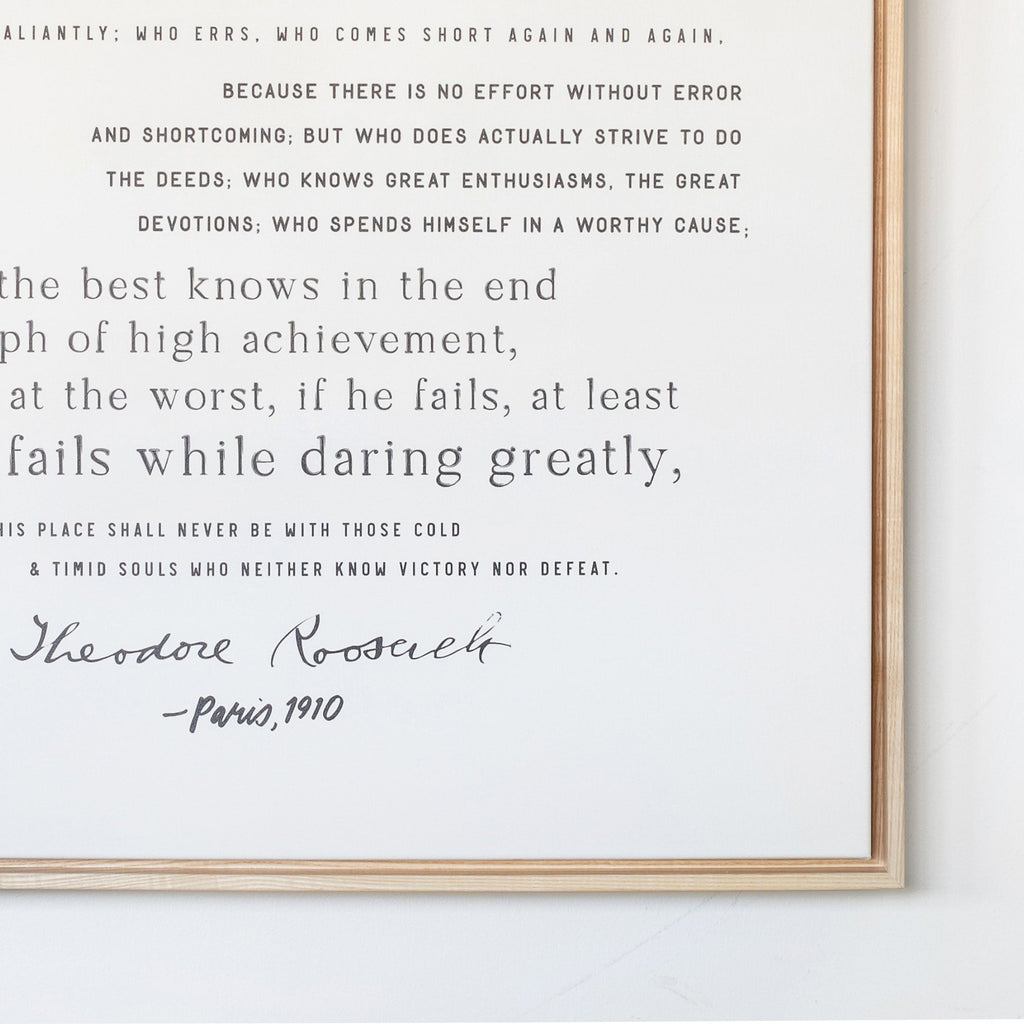 ALIANTLY; WHO ERRS, WHO COMES SHORT AGAIN AND AGAIN,
BECAUSE THERE IS NO EFFORT WITHOUT ERROR
AND SHORTCOMING; BUT WHO DOES ACTUALLY STRIVE TO DO
THE DEEDS; WHO KNOWS GREAT ENTHUSIASMS, THE GREAT
DEVOTIONS; WHO SPENDS HIMSELF IN A WORTHY CAUSE;
the best knows in the end
ph of high achievement,
at the worst, if he fails, at least
fails while daring greatly,
HIS PLACE SHALL NEVER BE WITH THOSE COLD
& TIMID SOULS WHO NEITHER KNOW VICTORY NOR DEFEAT.
Theodore Roosevelt
-Paris, 1910